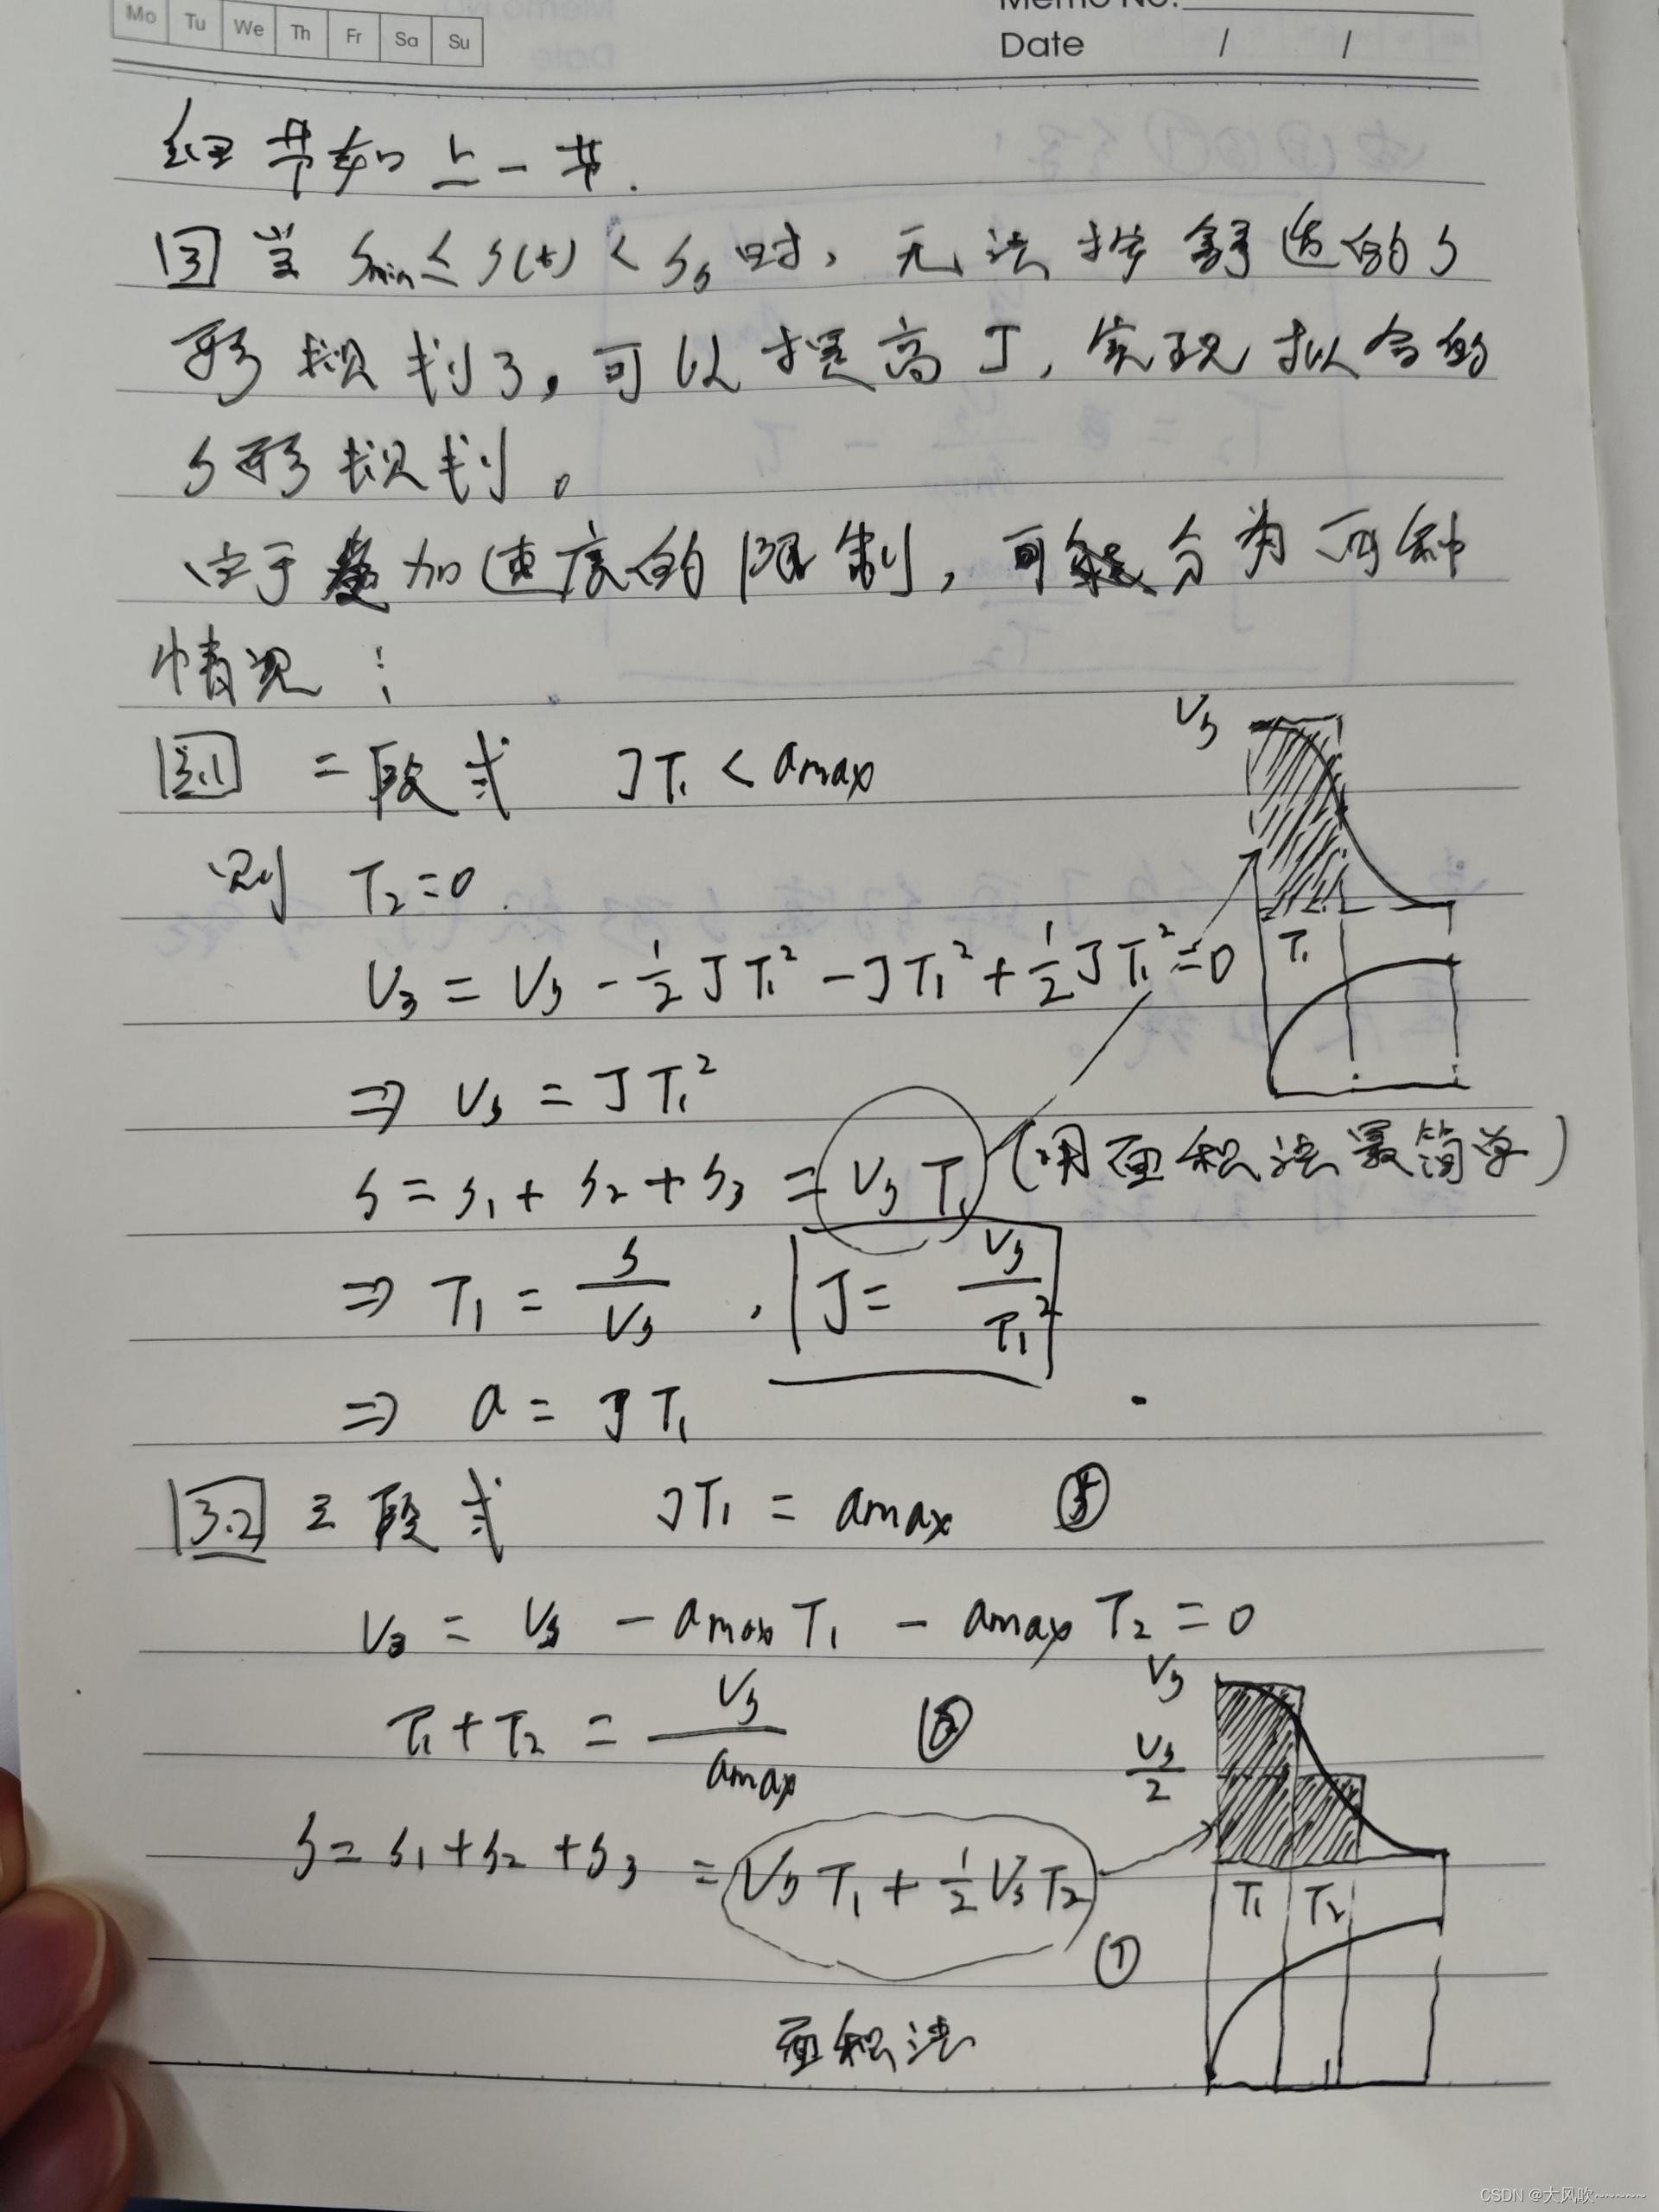 Mo Tu We Th Fr Sa Su
Memo No.
Date / /
细节如上一节.
[3] 当 Smin ≤ S(t) < Ss 时, 无法按舒适的S
形规划了, 可以提高J, 实现拟合的
S形规划。
由于加速度的限制, 可能分为两种
情况:
[3.1] 二段式 JT₁ < amax
则 T₂=0
V₃ = Vs - ½JT₁² - JT₁² + ½JT₁² = 0
⇒ Vs = JT₁²
S = S₁ + S₂ + S₃ = Vs T₁ (用面积法最简单)
⇒ T₁ = S/Vs , J = Vs/T₁²
⇒ a = JT₁
Vs
T₁
[3.2] 三段式 JT₁ = amax ⑤
V₃ = Vs - amax T₁ - amax T₂ = 0
T₁ + T₂ = Vs/amax ⑥
S = S₁ + S₂ + S₃ = Vs T₁ + ½ Vs T₂
⑦
面积法
Vs
Vs/2
T₁ T₂
CSDN @大风吹~~~~~